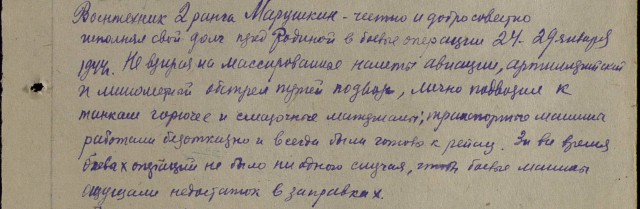 Воентехник 2 ранга Марушкин - честно и добросовестно
исполняя свой долг пред Родиной в боевые операции 24-29 января
1944г. Не взирая на массированные налеты авиации, артиллерийский
и минометный обстрел путей подвоза, лично подвозил к
танкам горючее и смазочные материалы, транспортные машины
работали безотказно и всегда были готовы к рейсу. За все время
боевых операций не было ни одного случая, чтобы боевые машины
ощущали недостаток в заправках.